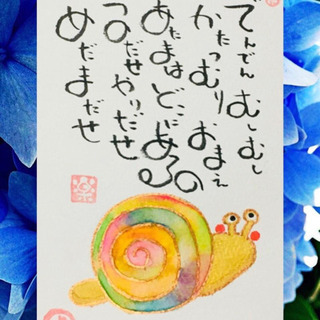 でんでん むしむし
かたつむり おまえ
あたまは どこにあるの
つのだせ やりだせ
めだまだせ